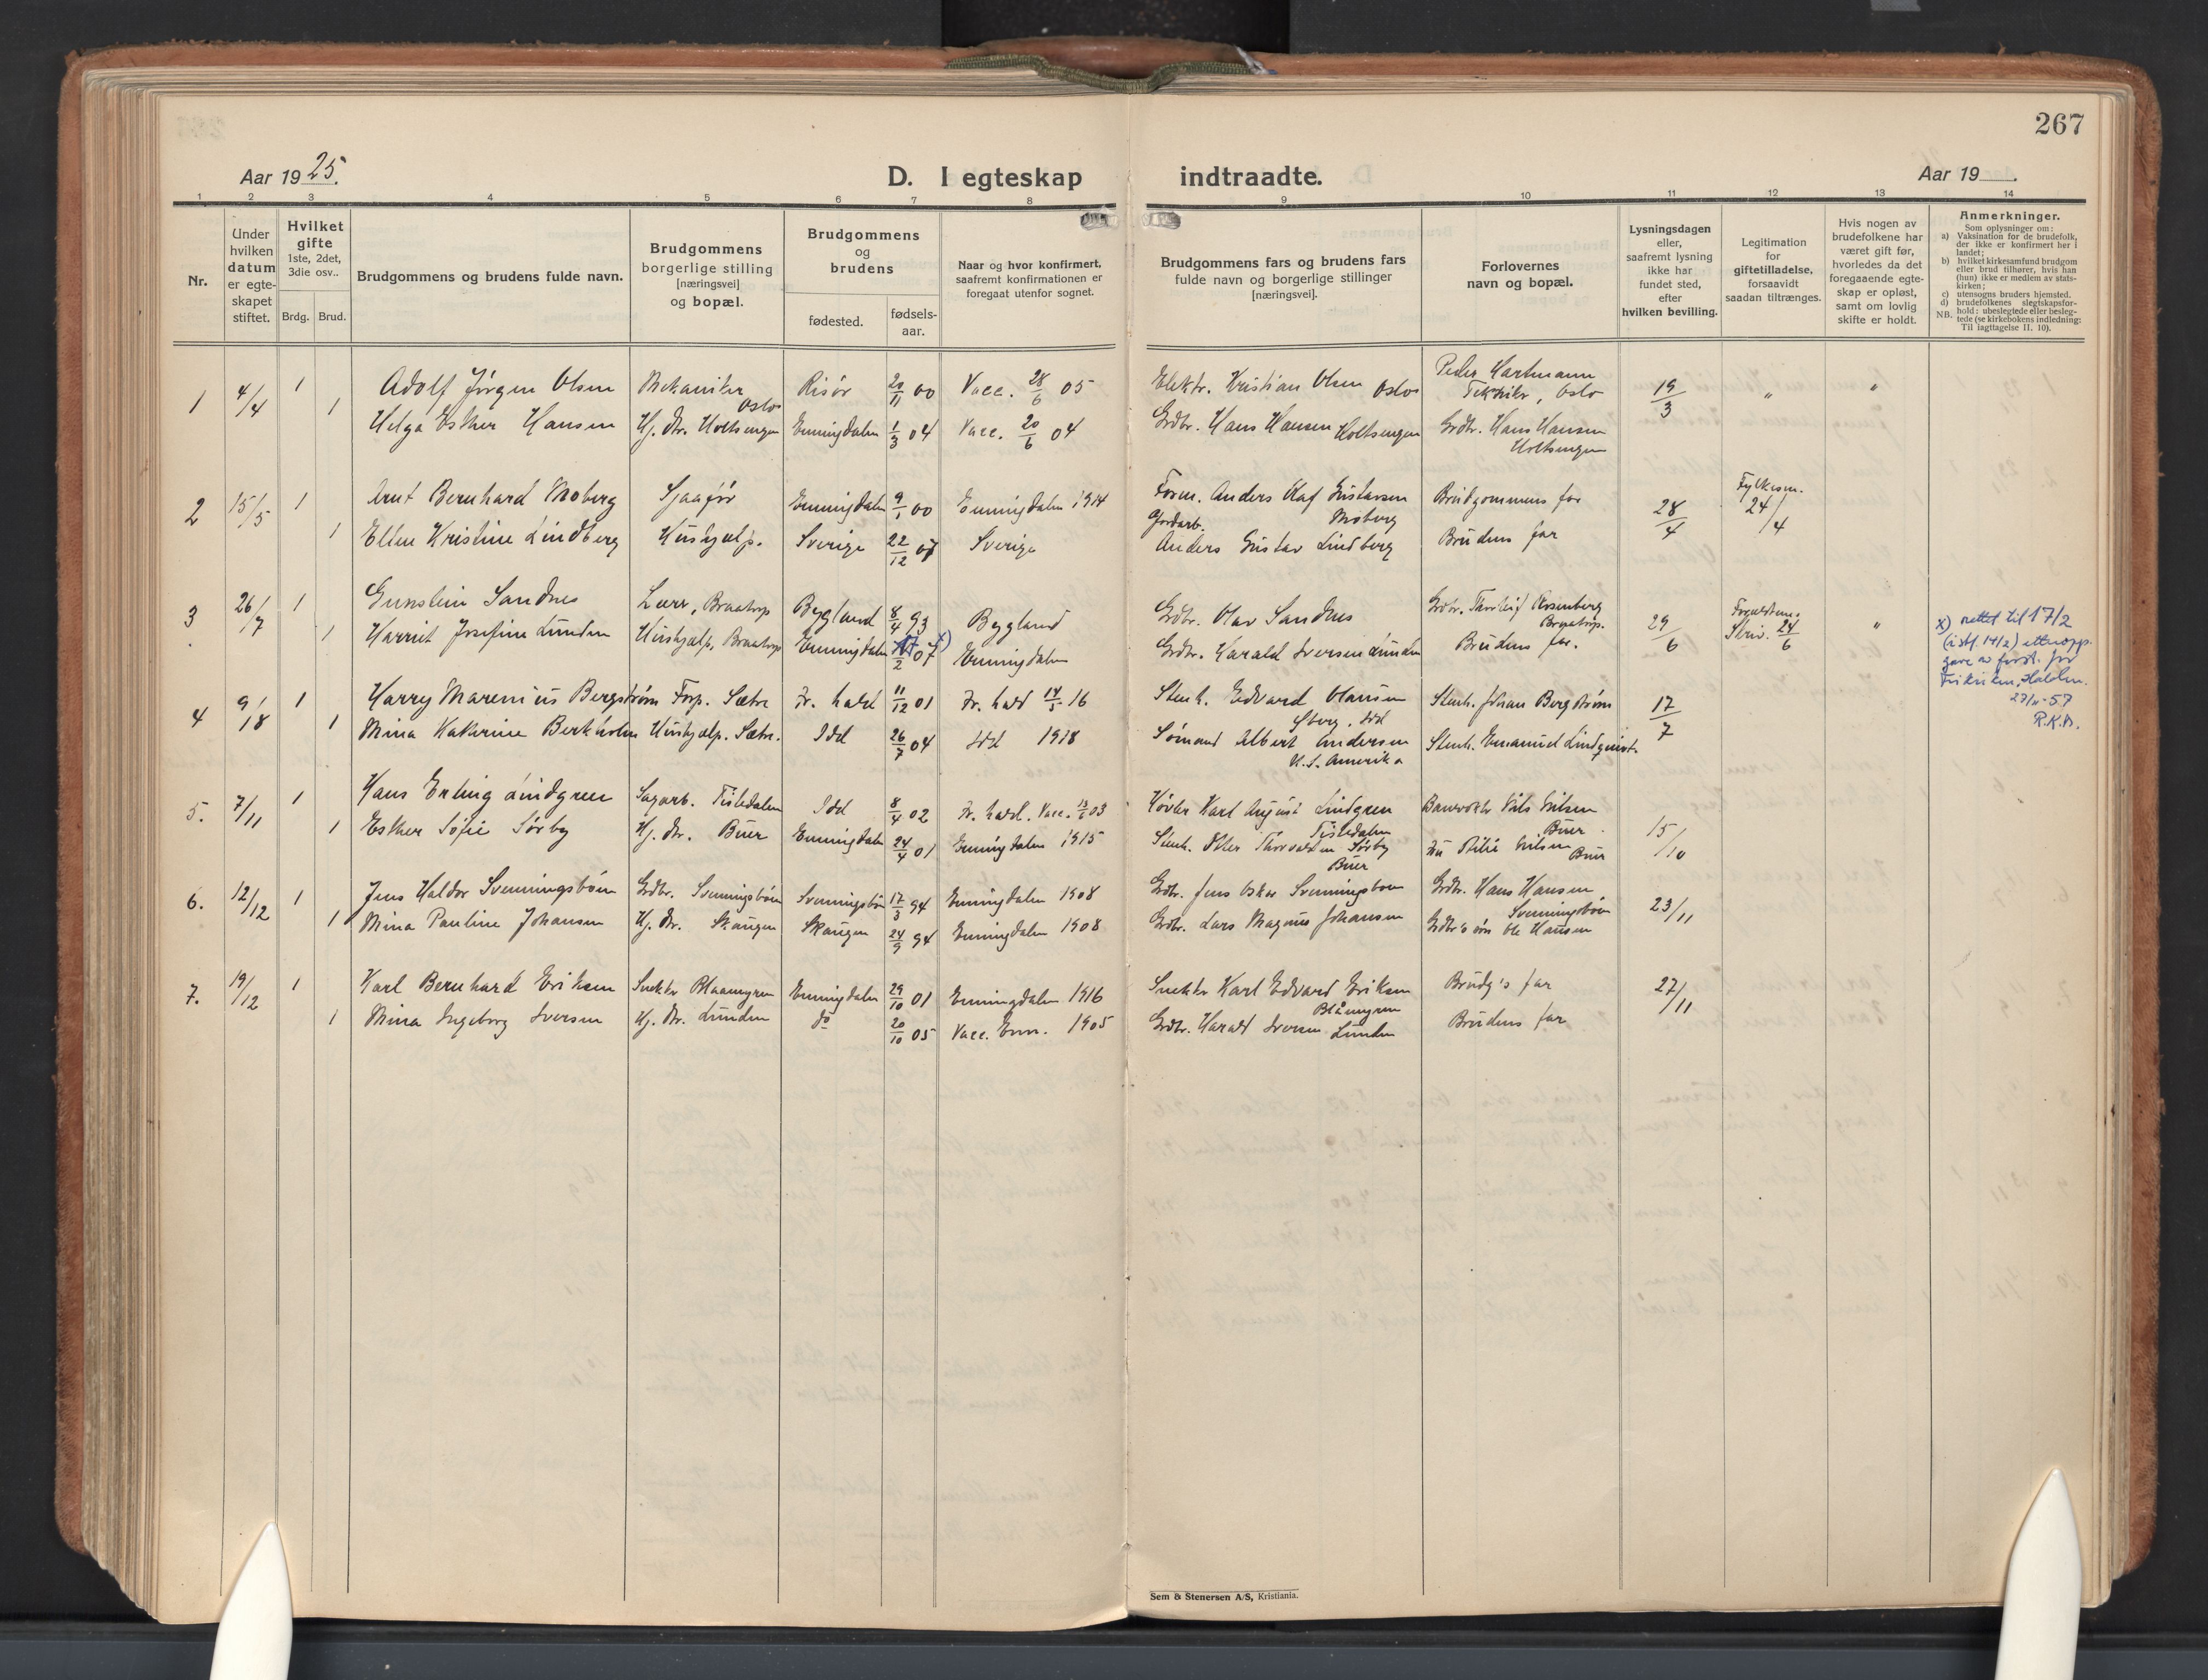 267
Aar 1925.
D. I egteskap indtraadte.
Aar 19
1 2 3 4 5 6 7 8 9 10 11 12 13 14
Nr.
Under hvilken datum er egteskapet stiftet.
Hvilket gifte 1ste, 2det, 3die osv..
Brdg. Brud.
Brudgommens og brudens fulde navn.
Brudgommens borgerlige stilling [næringsvei] og bopæl.
Brudgommens og brudens
fødested.
fødsels-aar.
Naar og hvor konfirmert, saafremt konfirmationen er foregaat utenfor sognet.
Brudgommens fars og brudens fars fulde navn og borgerlige stillinger [næringsvei].
Forlovernes navn og bopæl.
Lysningsdagen eller, saafremt lysning ikke har fundet sted, efter hvilken bevilling.
Legitimation for giftetilladelse, forsaavidt saadan tiltrænges.
Hvis nogen av brudefolkene har været gift før, hvorledes da det foregaaende egte-skap er opløst, samt om lovlig skifte er holdt.
Anmerkninger.
Som oplysninger om:
a) Vaksination for de brudefolk, der ikke er konfirmert her i landet;
b) hvilket kirkesamfund brudgom eller brud tilhører, hvis han (hun) ikke er medlem av stats-kirken;
c) utensogns bruders hjemsted.
d) brudefolkenes slegtskapsfor-hold: ubeslegtede eller besleg-tede (se kirkebokens indledning:
NB. Til iagttagelse II. 10).
1 4/4 1 Adolf Jörgen Olsen Mekaniker Oslo Risör 20/11 00 Vacc. 28/6 05 Elektr. Kristian Olsen Oslo Peder Hartmann Tekniker, Oslo 19/3 " "
1 Helga Esther Hansen Hj. dtr. Holtsengen Enningdalen 1/3 04 Vacc. 20/6 04 Grdbr. Hans Hansen Holtsengen Grdbr. Hans Hansen Holtsengen
2 15/5 1 Arnt Bernhard Moberg Sjaaför Enningdalen 9/1 00 Enningdalen 1914 Form. Anders Olaf Gustavsen Moberg Brudgommens far 28/4 Fylkesm. 24/4
1 Ellen Kristine Lindberg Hushjælp. Sverige 22/12 07 Sverige Gårdarb. Anders Gustav Lindberg Brudens far
3 26/7 1 Gunstein Sandnes Lærer, Braatorp Bygland 8/4 93 Bygland Grdbr. Olav Sandnes Grdbr. Thorleif Rosenberg Braatorp. 29/6 Foreldrene. Skriv. 24/6 "
1 Harriet Josefine Lunden Hushjælp, Braatorp Enningdalen 17/2 07 x) Enningdalen Grdbr. Harald Iversen Lunden Brudens far.
x) rettet til 17/2
(istf. 14/2) etter opp-
gave av forst. for
Frikirken, Halden.
27/11-57
R.K.A.
4 9/18 1 Harry Marenius Bergström Forp. Sætre Fr. hald 11/12 01 Fr. hald 14/5 16 Stenh. Edvard Hansen Öberg, Idd Stenh. Johan Bergström 17/7
1 Mina Katherine Berkholm Hushjælp. Sætre. Idd 26/7 04 Idd 1918 Sömand Albert Andersen U. S. Amerika Stenh. Emanuel Lindqvist.
5. 7/11 1 Hans Erling Lindgren Sagarb. Tistedalen Idd 8/4 02 Fr. hald. Vacc. 13/6 03 Hövler Karl August Lindgren Tistedalen Banevokter Nils Nilsen Buer 15/10
1 Esther Sofie Sörby Hj. dtr. Buer Enningdalen 24/4 01 Enningdalen 1915 Stenh. Peter Thorvaldsen Sörby Buer Fru Otilie Nilsen Buer
6. 12/12 1 Jens Haldor Svenningsböen Grdbr. Svenningsböen Svenningsböen 17/3 94 Enningdalen 1908 Grdbr. Jens Oskar Svenningsböen Grdbr. Hans Hansen Svenningsböen 23/11
1 Mina Pauline Johansen Hj. dtr. Skaugen Skaugen 24/9 94 Enningdalen 1908 Grdbr. Lars Magnus Johansen Grdbr's sön Ole Hansen
7. 19/12 1 Karl Bernhard Eriksen Snekker Blaamyren Enningdalen 29/10 01 Enningdalen 1916 Snekker Karl Edvard Eriksen Blåmyren Brudg's far 27/11
1 Mina Ingeborg Iversen Hj. dtr. Lunden do 20/10 05 Vacc. Enn. 1905 Grdbr. Harald Iversen Lunden Brudens far
Sem & Stenersen A/S, Kristiania.